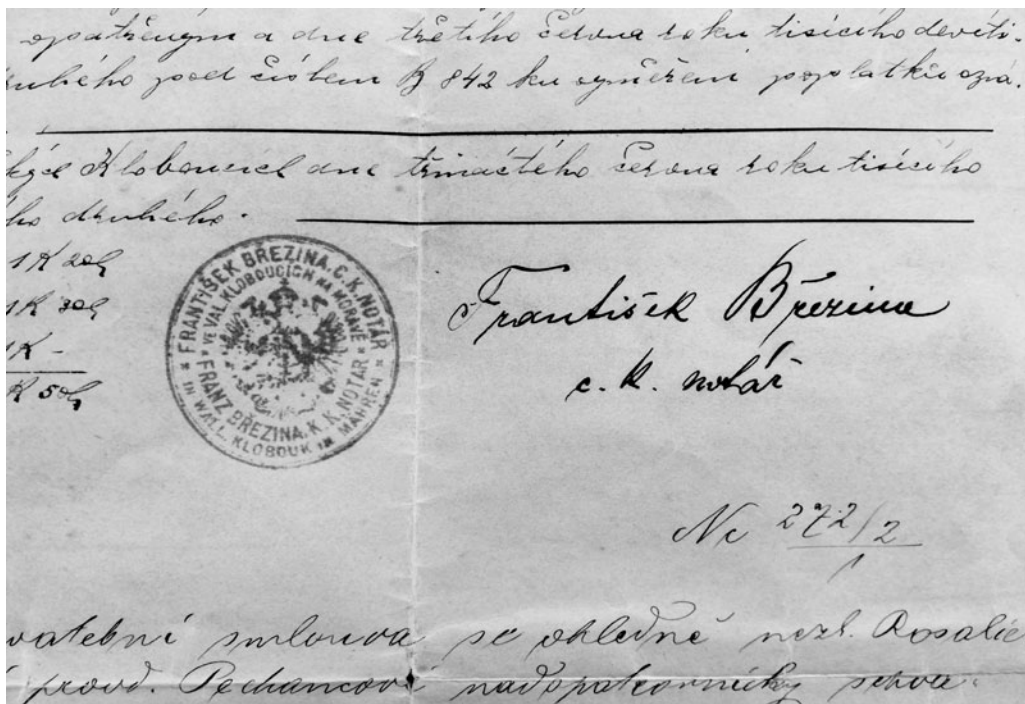 opatřeným a dne třetího června roku tisícího devíti-
druhého pod číslem B 842 ku vyměření poplatku ozná.
Kloboucích dne třináctého června roku tisícího
ho druhého.
1K 20h
1K 30h
1K -
K 50h
FRANTIŠEK BŘEZINA, C. K. NOTÁŘ
* VE VAL. KLOBOUCÍCH NA MORAVĚ *
* FRANZ BŘEZINA, K. K. NOTAR *
IN WALL. KLOBOUK IN MÄHREN
František Březina
c. k. notář
Nc 272/2
1
vatební smlouva se ohledně nezl. Rosalie
provd. Pechancové nadopatrovnicky schva-